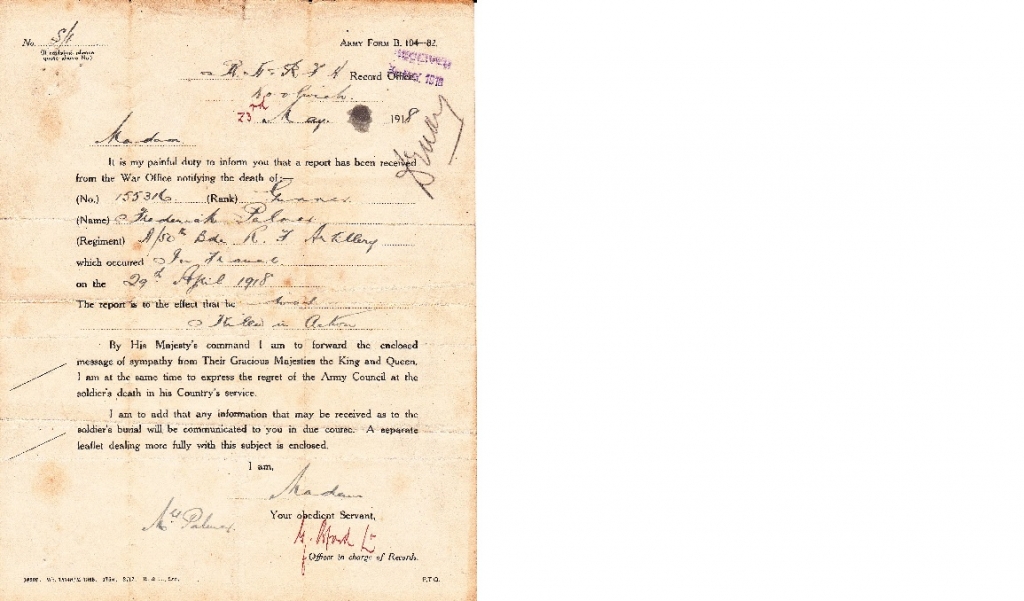 No. S/11
(If replying please quote above No.)
ARMY FORM B. 104—82.
R. H. & R. F. A. Record Office,
Woolwich.
23rd May 1918
RECEIVED
1918
Madam
It is my painful duty to inform you that a report has been received
from the War Office notifying the death of:—
(No.) 155316 (Rank) Gunner
(Name) Frederick Palmer
(Regiment) A/50th Bde R. F Artillery
which occurred In France
on the 29th April 1918
The report is to the effect that he was
Killed in Action
By His Majesty's command I am to forward the enclosed
message of sympathy from Their Gracious Majesties the King and Queen.
I am at the same time to express the regret of the Army Council at the
soldier's death in his Country's service.
I am to add that any information that may be received as to the
soldier's burial will be communicated to you in due course. A separate
leaflet dealing more fully with this subject is enclosed.
I am,
Madam
Your obedient Servant,
Mrs Palmer.
Officer in charge of Records.
P.T.O.